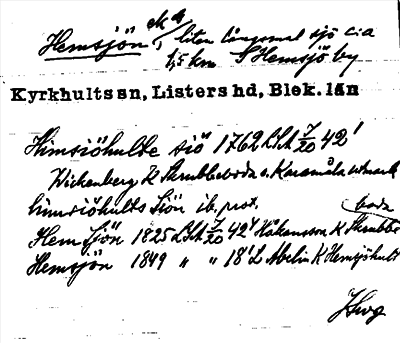 Hemsjön, ek A liten långsmal sjö c:a
1,5 km S Hemsjö by
Kyrkhults sn, Listers hd, Blek. län
Himsiöhulte siö 1762 LSA 7/20 42'
Wickenberg K Skrubbeboda o. Karamåla utmark
himsiöhults Siön ib. prot.
Hem Sjön 1825 LSA 7/20 42⁴ Håkansson K Skrubbe
boda
Hemsjön 1849 " " 18' L Abelin K Hemsjöhult